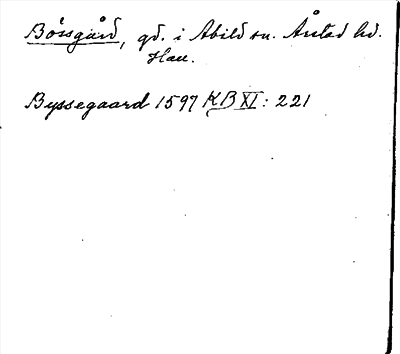 Bössgård, gd. i Abild sn. Årstad hd.
Hall.
Byssegaard 1597 KB XI: 221